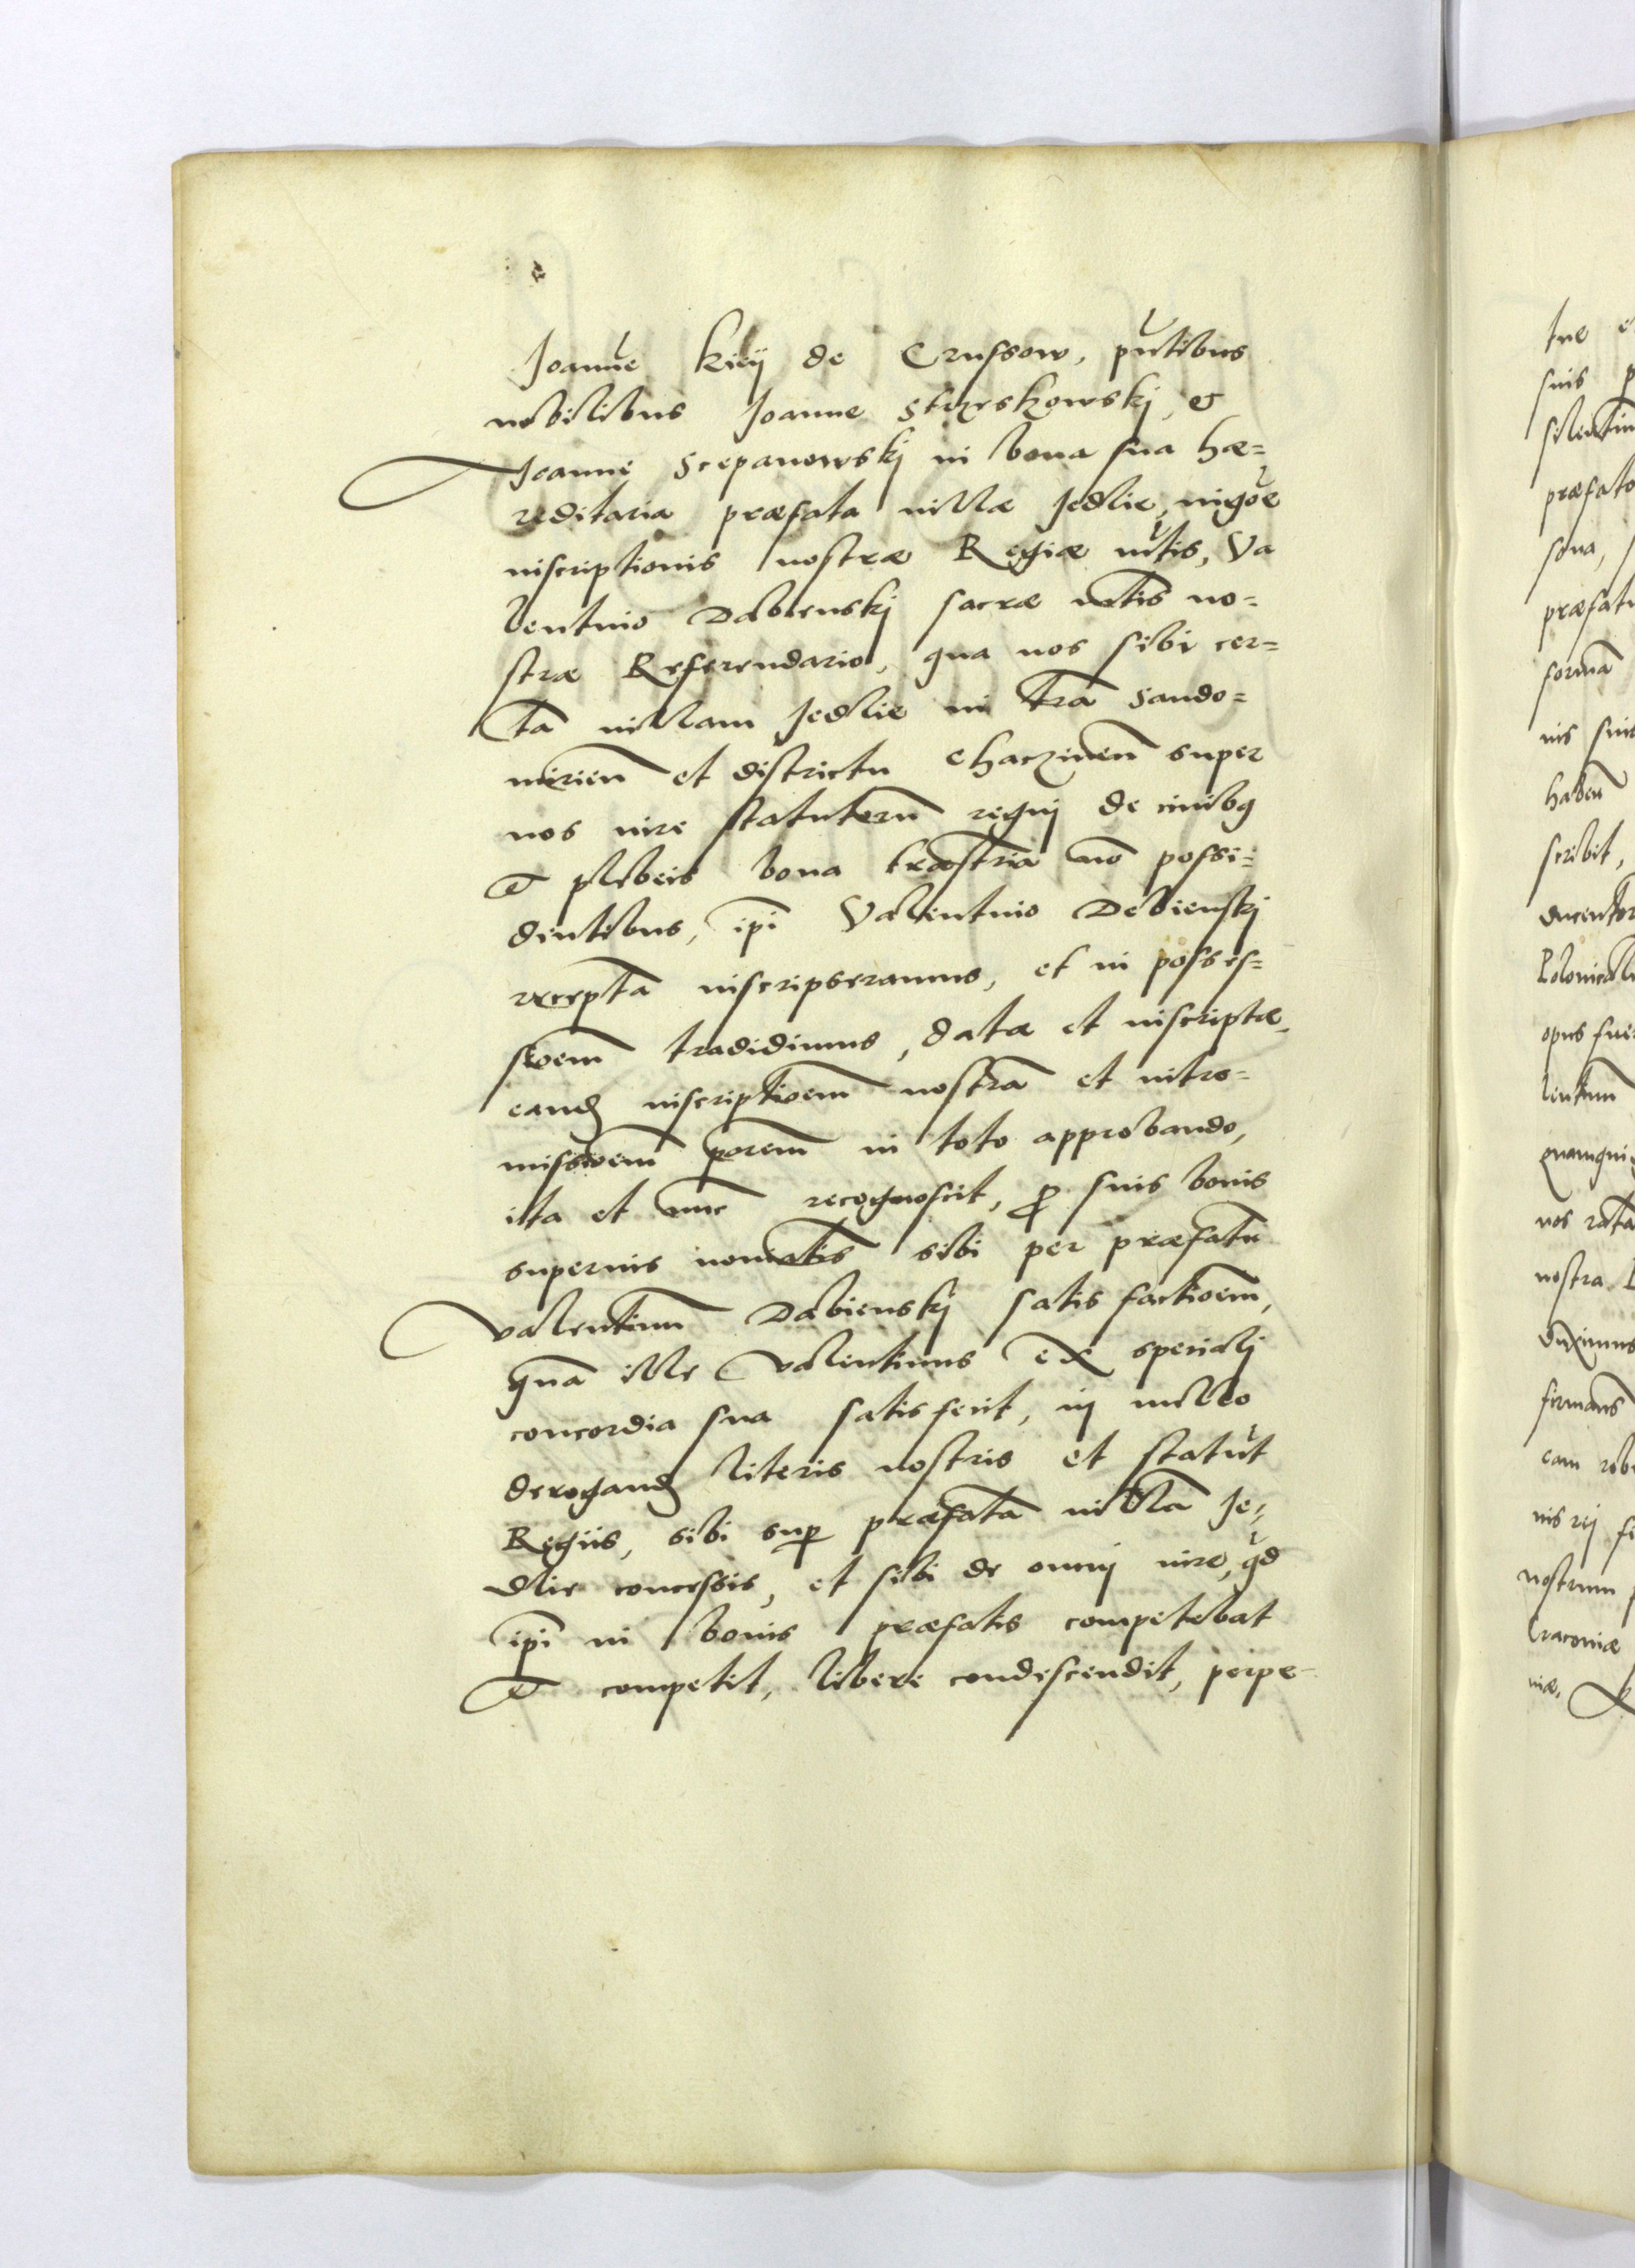 Joanne Kiey de Crussow, pñtibus
nobilibus Joanne Strzeskowskj &
Joanne Scepanowskj in bona sua hæ=
reditaria præfata villæ Jedlie, vigõe
inscriptionis nostræ Regiæ mtis, Va
lentino Dabienskj sacræ mtis no=
stræ Referendario, qua nos sibi cer=
tã villam Jedlie in tra Sando=
mirien et districtu Chaczinen super
nos iure statutorũ regnj de civibq
et plebeis bona træstria nõ possi=
dentibus, ipi Valentino Debienskj
receptã inscripseramus, et in posses=
sioem tradidimus, data et inscripta
eand inscriptioem nostrã et intro=
missioem porem in toto approbando,
ita et nunc recognoscit, p suis bonis
superius nominatis sibi per præfatũ
Valentinũ Dabienskj satis factioem,
quã ille Valentinus ex specialj
concordia sua satisfecit, in nullo
derogand literis nostris et statut
Regiis, sibi sup præfatã villã Je=
dlie concessis, et sibi de omnj iure, qd
ipi in bonis præfatis competebat
et competit, libere condescendit, perpe=
tuæ
suis
præfato
sona,
præfatu
formã
nis suis
haben
scribit,
ducentor
Polonicali
opus fue
lentinum
nos rata
nostra
duximus
nis rej
nostrum
Cracoviæ
niæ,